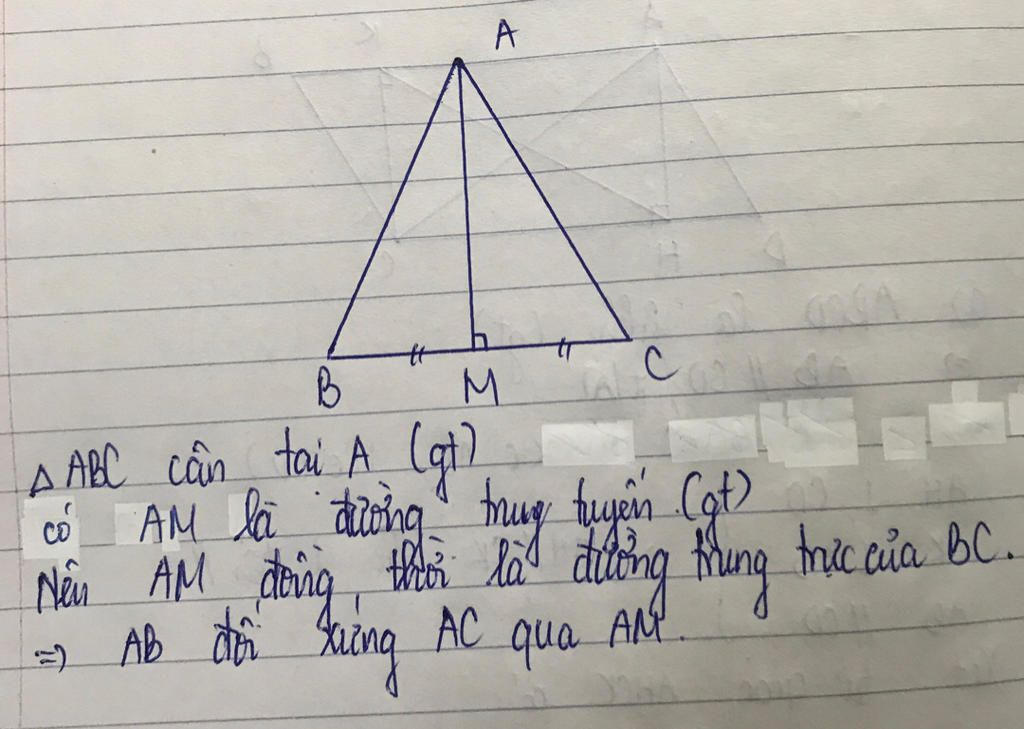 A
B
M
C
△ ABC cân tại A (gt)
có AM là đường trung tuyến (gt)
Nên AM đồng thời là đường trung trực của BC.
=> AB đối xứng AC qua AM.